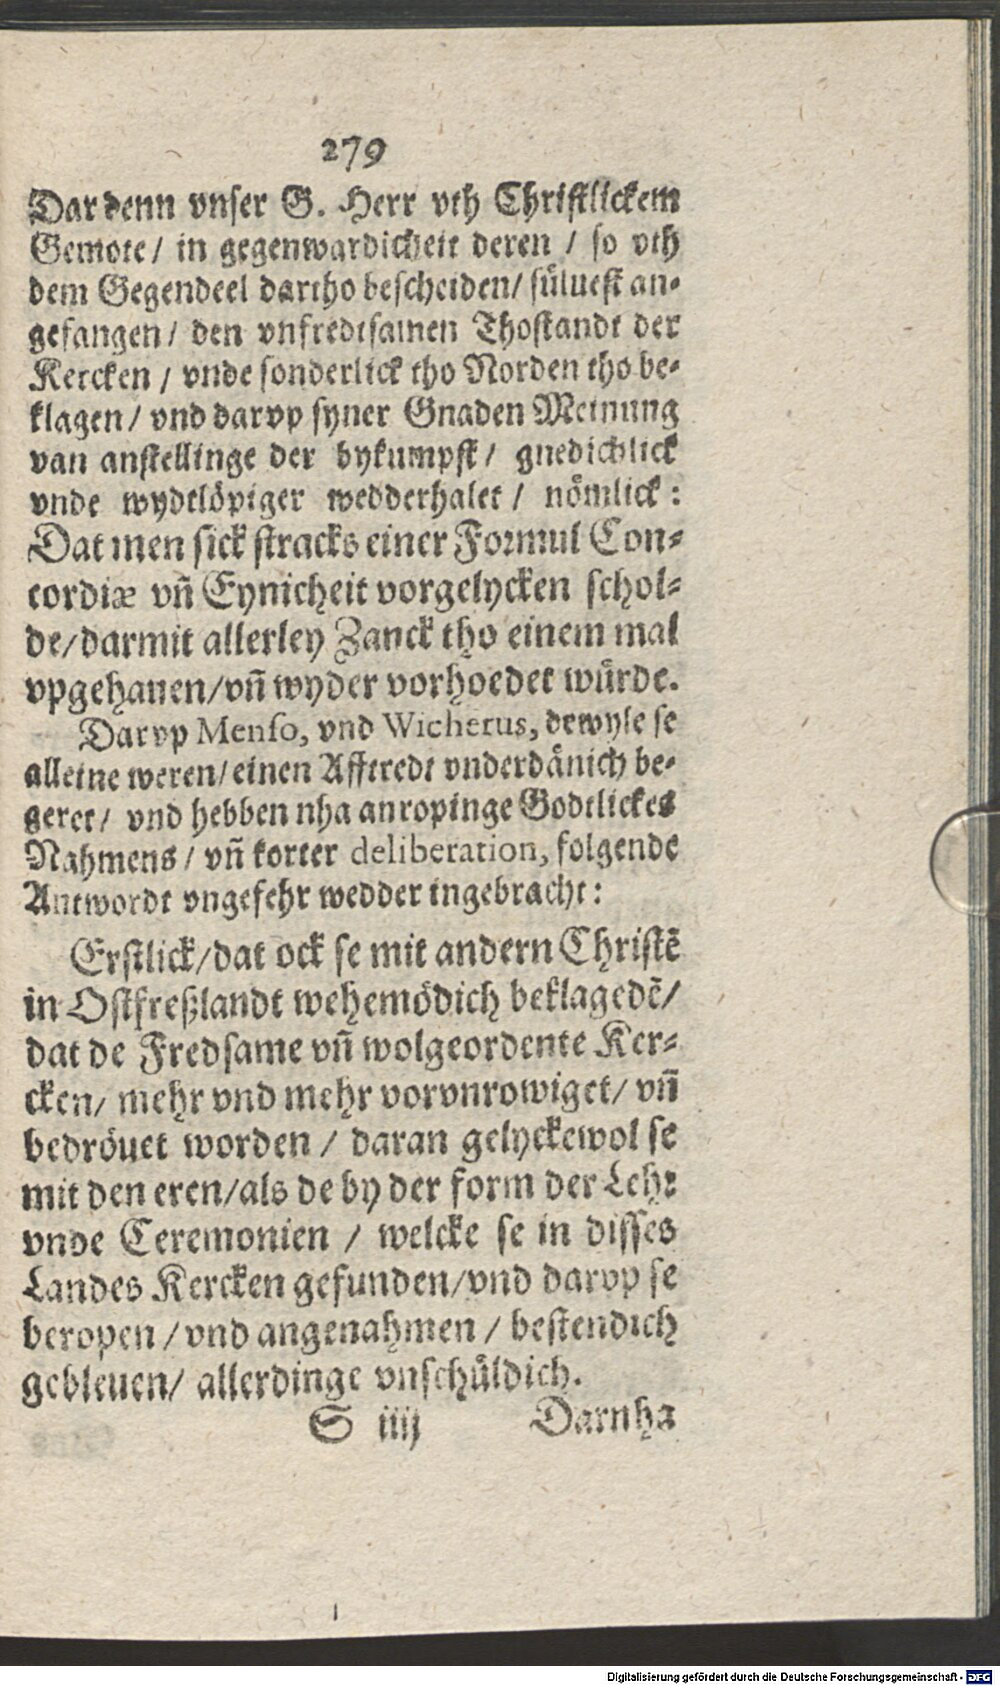 279
Dar denn vnser G. Herr vth Christlickem
Gemote/ in gegenwardicheit deren / so vth
dem Gegendeel dartho bescheiden/ süluest an-
gefangen/ den vnfredtsamen Thostandt der
Kercken / vnde sonderlick tho Norden tho be-
klagen/ vnd darvp syner Gnaden Meinung
van anstellinge der bykumpst/ gnedichlick
vnde wydtlöpiger wedderhalet / nömlick:
Dat men sick stracks einer Formul Con-
cordiæ vn̄ Eynicheit vorgelycken schol-
de/darmit allerley Zanck tho einem mal
vpgehauen/vn̄ wyder vorhoedet würde.
Darvp Menso, vnd Wicherus, dewyle se
alleine weren/einen Afftredt vnderdänich be-
geret/ vnd hebben nha anropinge Godtlickes
Nahmens/ vn̄ korter deliberation, folgende
Antwordt vngefehr wedder ingebracht:
Erstlick/dat ock se mit andern Christē
in Ostfreßlandt wehemödich beklagedē/
dat de Fredsame vn̄ wolgeordente Ker-
cken/ mehr vnd mehr vorvnrowiget/ vn̄
bedröuet worden / daran gelyckewol se
mit den eren/als de by der form der Lehr
vnde Ceremonien / welcke se in disses
Landes Kercken gefunden/vnd darvp se
beropen /vnd angenahmen / bestendich
gebleuen/ allerdinge vnschüldich.
S iiij Darnha
Digitalisierung gefördert durch die Deutsche Forschungsgemeinschaft - DFG